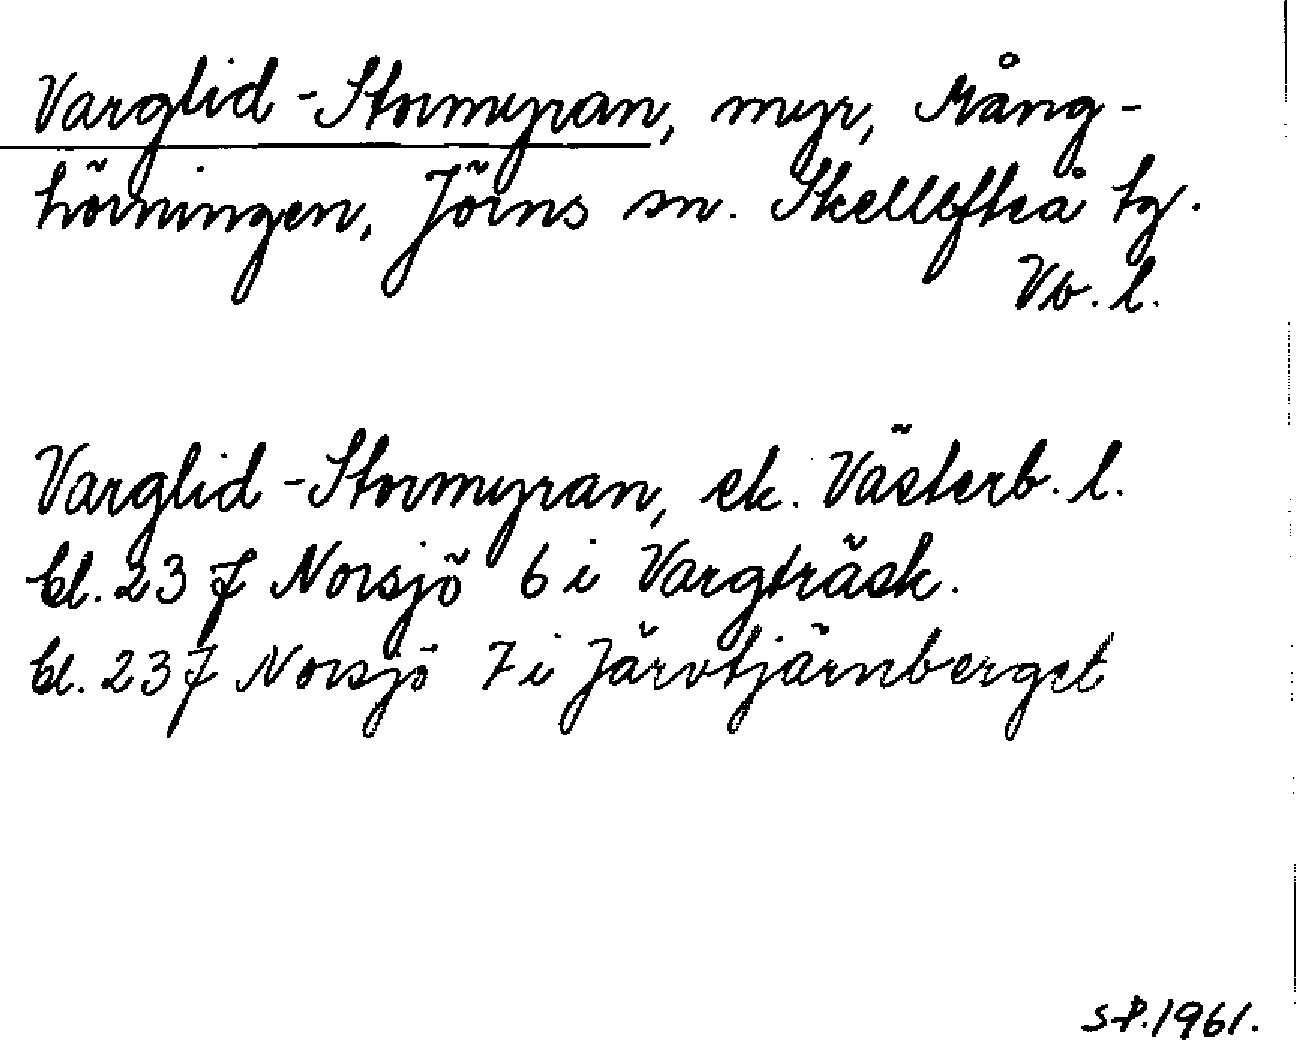 Varglid-Stormyran, myr, Mång-
hörningen, Jörns sn. Skellefteå tg.
Vb. l.
Varglid-Stormyran, ek. Västerb. l.
bl. 23 J Norsjö 6 i Vargträsk.
bl. 23 J Norsjö 7 i Järvtjärnberget
S.P. 1961.